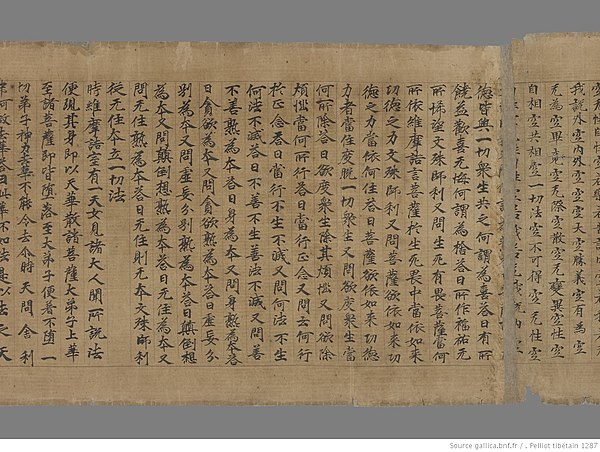 我説外空内外空空空大空勝義空有為空
无為空畢竟空无際空散空无變異空本性空
自相空共相空一切法空不可得空无性空
德皆與一切衆生共之何謂為喜答曰有所
饒益歡喜无悔何謂為捨答曰所作福祐无
所悕望文殊師利又問生死有畏菩薩當何
所依維摩詰言菩薩於生死畏中當依如来
功德之力文殊師利又問菩薩欲依如来功
德之力當依何住答曰菩薩欲依如来功德
力者當住度脫一切衆生又問欲度衆生當
何所除答曰欲度衆生除其煩惱又問欲除
煩惱當何所行答曰當行正念又問云何行
於正念答曰當行不生不滅又問何法不生
何法不滅答曰不善不生善法不滅又問善
不善孰為本答曰身為本又問身孰為本答
曰貪欲為本又問貪欲孰為本答曰虛妄分
別為本又問虛妄分別孰為本答曰顛倒想
為本又問顛倒想孰為本答曰无住為本又
問无住孰為本答曰无住則无本文殊師利
從无住本立一切法
時維摩詰室有一天女見諸大人聞所說法
便現其身即以天華散諸菩薩大弟子上華
至諸菩薩即皆墮落至大弟子便著不墮一
切弟子神力去華不能令去尒時天問舍利
弗何故去華答曰此華不如法是以去之天
Source gallica.bnf.fr / . Pelliot tibétain 1287